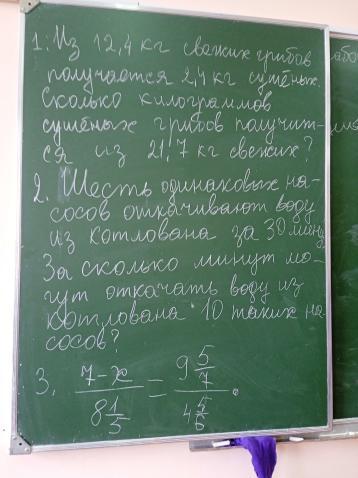 1. Из 12,4 кг свежих грибов
получается 2,4 кг сушёных.
Сколько килограммов
сушёных грибов получит-
ся из 21,7 кг свежих?
2. Шесть одинаковых на-
сосов откачивают воду
из котлована за 30 мин.
За сколько минут мо-
гут откачать воду из
котлована 10 таких на-
сосов?
3. (7-x)/(8 1/5) = (9 5/7)/(4 5/6).